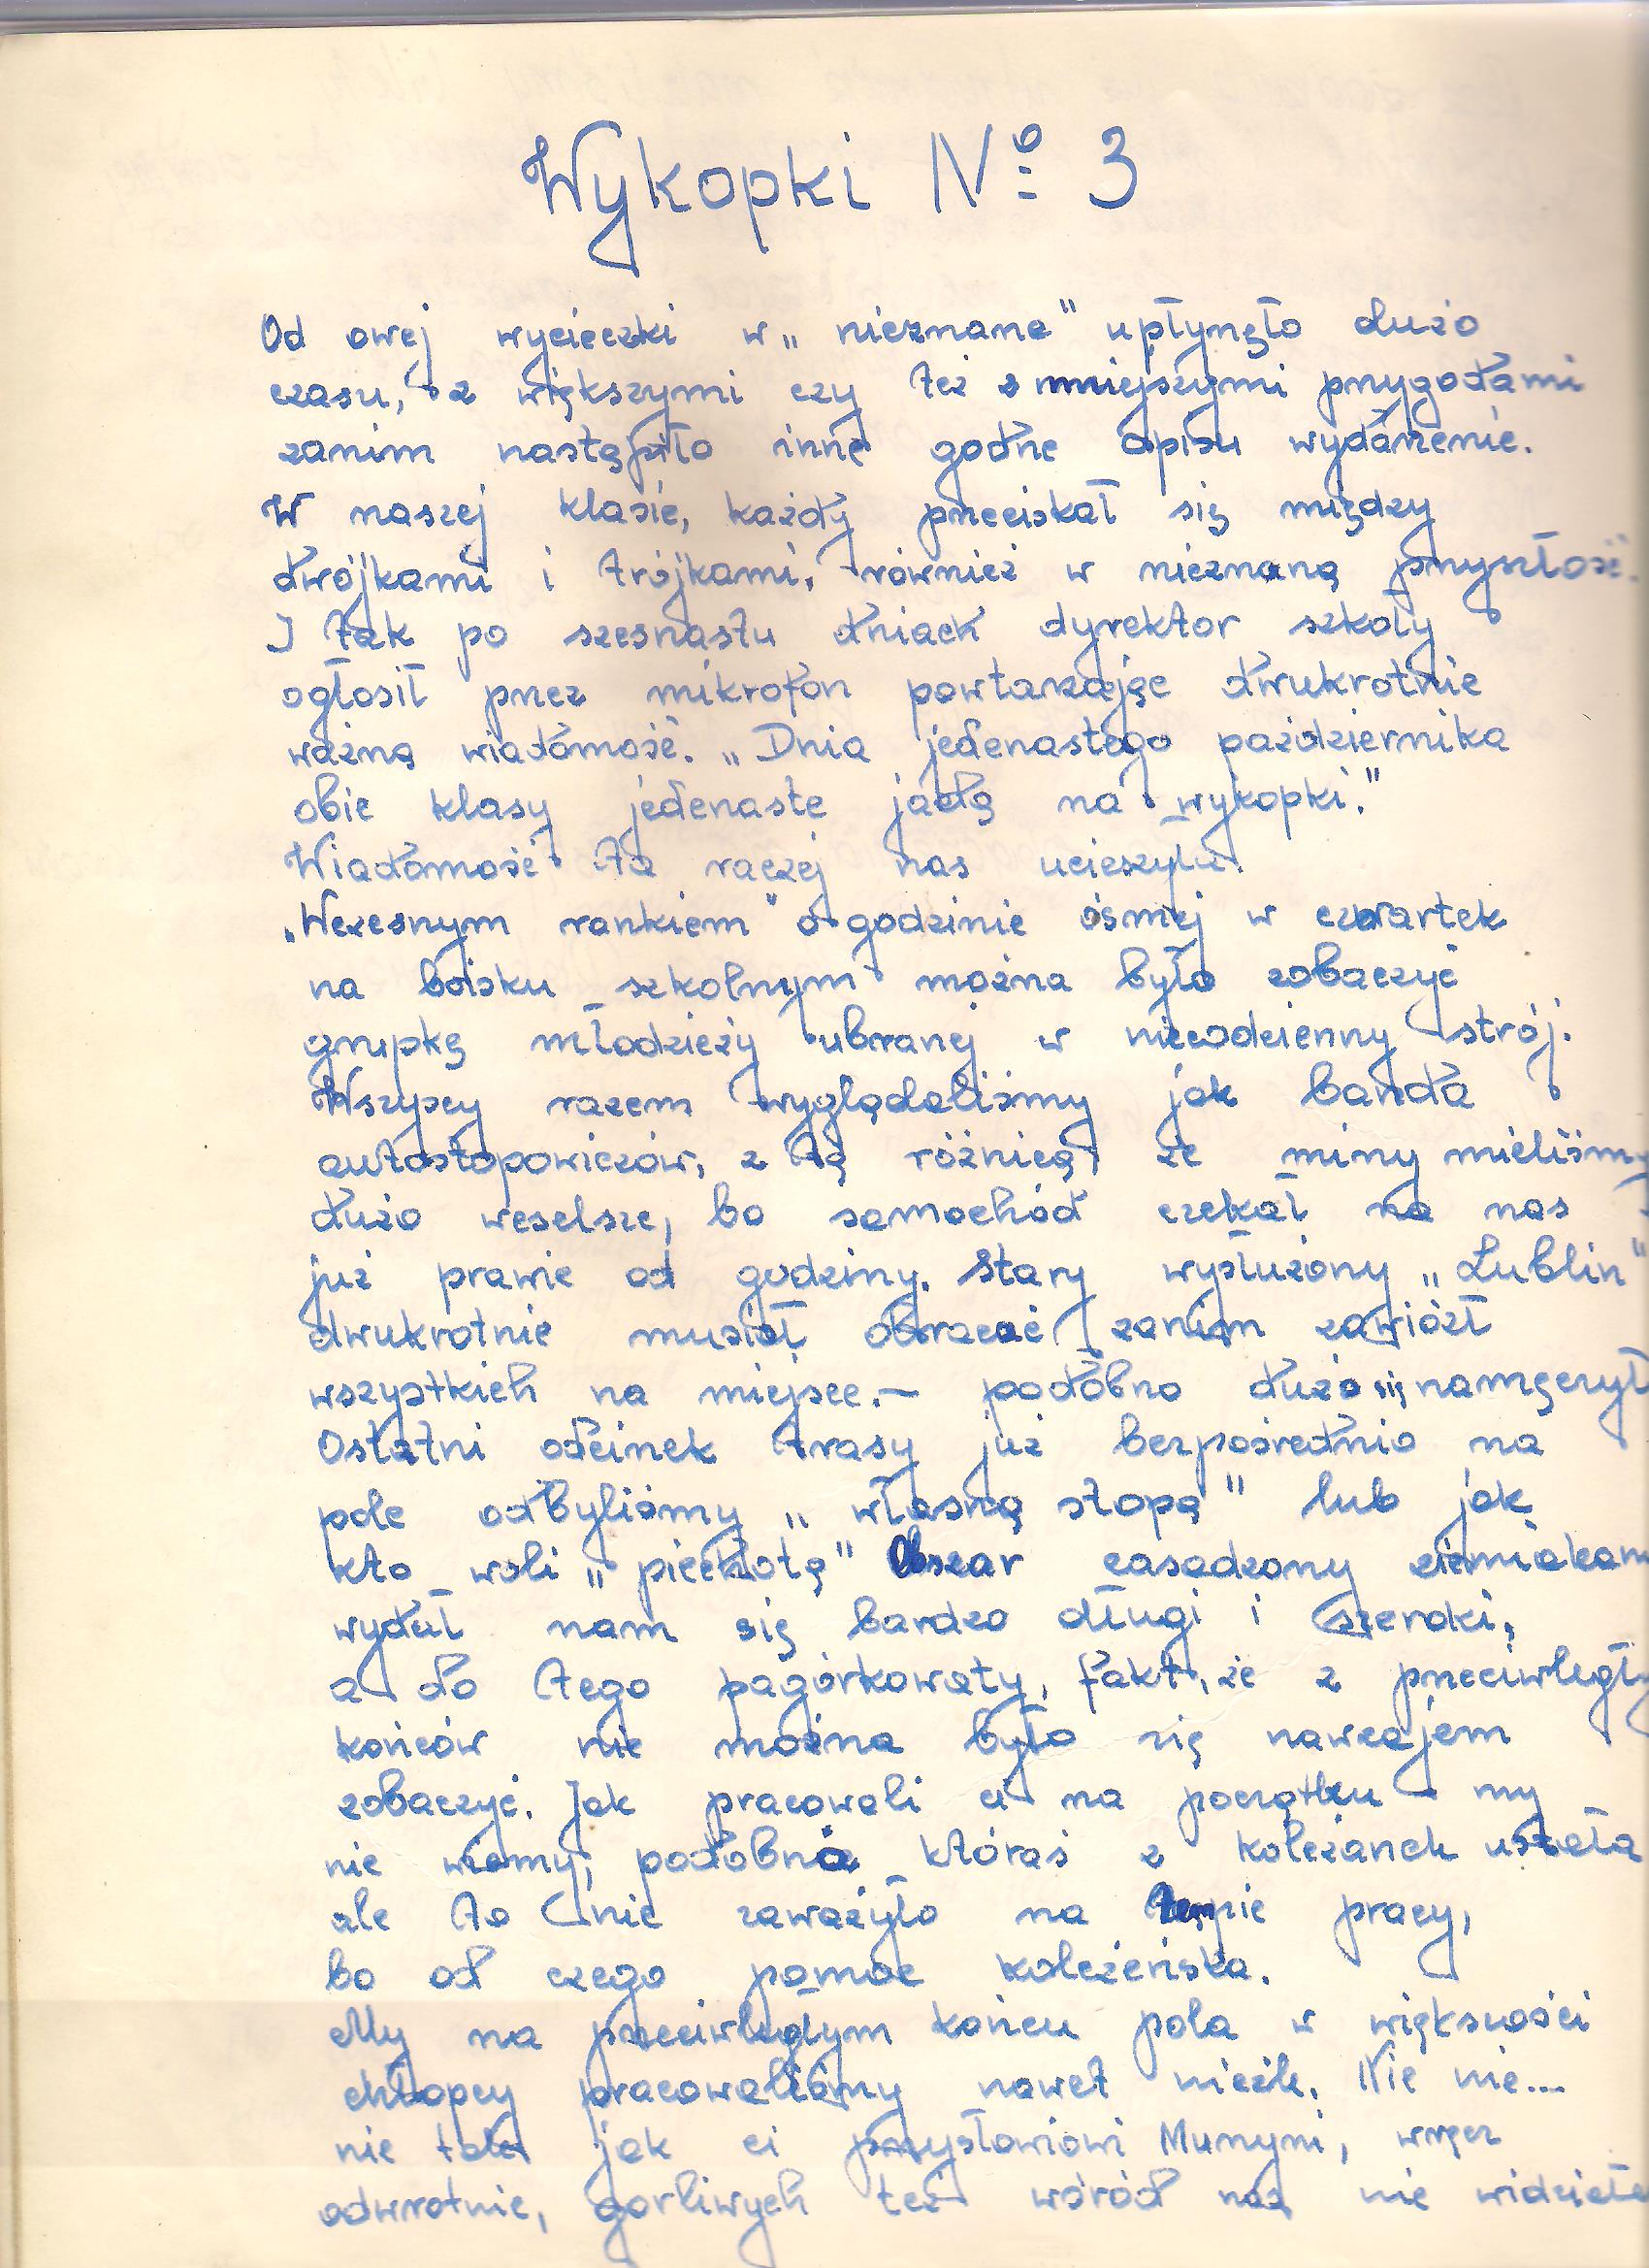 Wykopki Nº 3
Od owej wycieczki w „nieznane" upłynęło dużo
czasu, z większymi czy też z mniejszymi przygodami
zanim nastąpiło inne godne opisu wydarzenie.
W naszej klasie, każdy przeciskał się między
dwójkami i trójkami, również w nieznaną przyszłość.
I tak po szesnastu dniach dyrektor szkoły
ogłosił przez mikrofon powtarzając dwukrotnie
ważną wiadomość. „Dnia jedenastego października
obie klasy jedenaste jadą na wykopki."
Wiadomość ta raczej nas ucieszyła.
„Wczesnym rankiem" o godzinie ósmej w czwartek
na boisku szkolnym można było zobaczyć
grupkę młodzieży ubranej w niecodzienny strój.
Wszyscy razem wyglądaliśmy jak banda
autostopowiczów, z tą różnicą, że miny mieliśmy
dużo weselsze, bo samochód czekał na nas
już prawie od godziny. Stary wysłużony „Lublin"
dwukrotnie musiał obracać zanim zawiózł
wszystkich na miejsce. — podobno dużo się namęczył
Ostatni odcinek trasy już bezpośrednio na
pole odbyliśmy „własną stopą" lub jak
kto woli „piechotą" Obszar zasadzony ziemniakam
wydał nam się bardzo długi i szeroki,
a do tego pagórkowaty, fakt, że z przeciwległy
końców nie można było się nawzajem
zobaczyć. Jak pracowali ci na początku my
nie wiemy, podobno któraś z koleżanek ustała
ale to nie zaważyło na tempie pracy,
bo od czego pomoc koleżeńska.
My na przeciwległym końcu pola w większości
chłopcy pracowaliśmy nawet nieźle. Nie nie...
nie tak jak ci przysłowiowi Murzyni, wręcz
odwrotnie, gorliwych też wśród nas nie widziałe